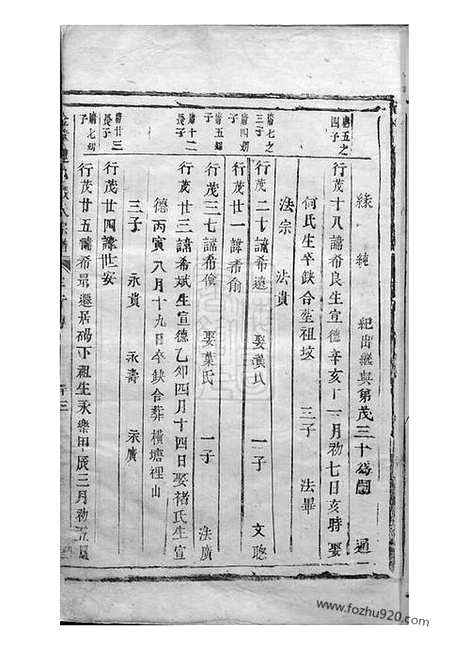 緣 純 紀出繼與第茂三十為嗣 通
廣五之四子
行茂十八諱希良生宣德辛亥十一月初七日亥時娶
何氏生卒缺合塟祖墳 三子 法畢
法宗 法貴
廣七之三子
行茂二十諱希遠 娶龔氏 一子 文聰
行茂廿一諱希俞
行茂三七諱希儉 娶葉氏 一子 法廣
長子
行茂廿三諱希斌生宣德乙卯四月十四日娶褚氏生宣
德丙寅八月十九日卒缺合葬橫塘裡山
三子 永貴 永壽 永廣
長子
行茂廿四諱世安
行茂廿五諱希最遷居碼下祖生永樂甲辰三月初五
宗譜
www.fozhu920.com